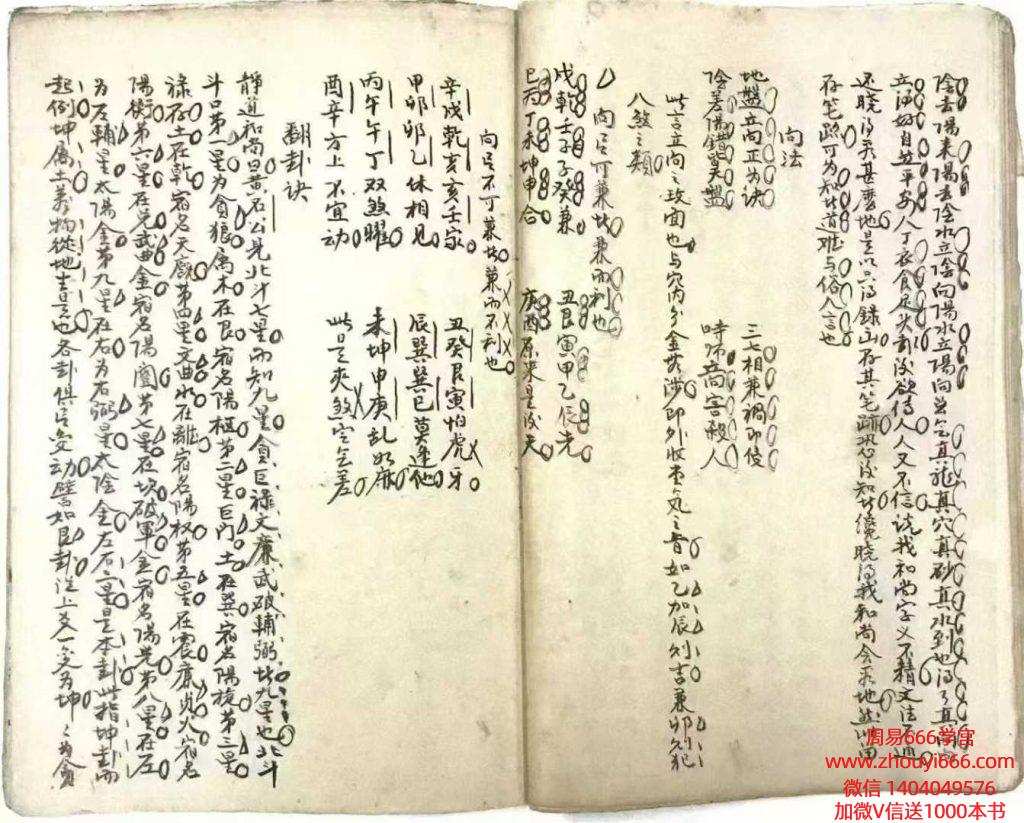 陰去陽来陽去陰水立陰向陽水立陽向生气真龍真穴真砂真水到也得了真向
立酒如自然平安人丁衣食足矣卦没欲傳人人又不信说我和尚字义不精文法不通
还晓得求甚麼地是以只得錄山存其笔跡恐后知此儘晓得我和尚会求地然以用
存笔跡可为知此道难与俗人言也
向法
地盤立向正为诀 三七相兼禍即侵
陰差陽錯異盤 時师立向害殺人
此言立向之攻南也与穴内分金无涉即外收来气之音如乙加辰则吉兼卯则犯
八煞之類
向后可兼此兼而利也
戊乾壬子子癸兼 丑艮寅甲乙辰先
巳丙丁未坤申合 庚酉原来是后天
向后不可兼此兼而不利也
辛戌乾亥亥壬家 丑癸艮寅怕虎牙
甲卯卯乙休相見 辰巽巽巳莫逢他
丙午午丁双煞曜 未坤申庚乱如麻
酉辛方上不宜动 此是夾煞空亡差
翻卦诀
靜道和尚曰黄石公見北斗七星而知九星貪巨禄文廉武破輔弼此九星也北斗
斗口第一星为貪狼属木在艮宿名陽樞第二星巨门土在巽宿名陽旋第三星
禄存土在乾宿名天戲第四星文曲水在離宿名陽权第五星在震廉贞火宿名
陽衡第六星在兑武曲金宿名陽闓第七星在坎破軍金宿名陽光第八星在左
为左輔星太陽金第九星在右为右弼星太陰金左右二星是本卦此指坤卦而
起例坤属土萬物從地去是也各卦俱后变动譬如艮卦從上爻一变为坤坤为貪
周易666学宫
www.zhouyi666.com
微信 1404049576
加微V信送1000本书